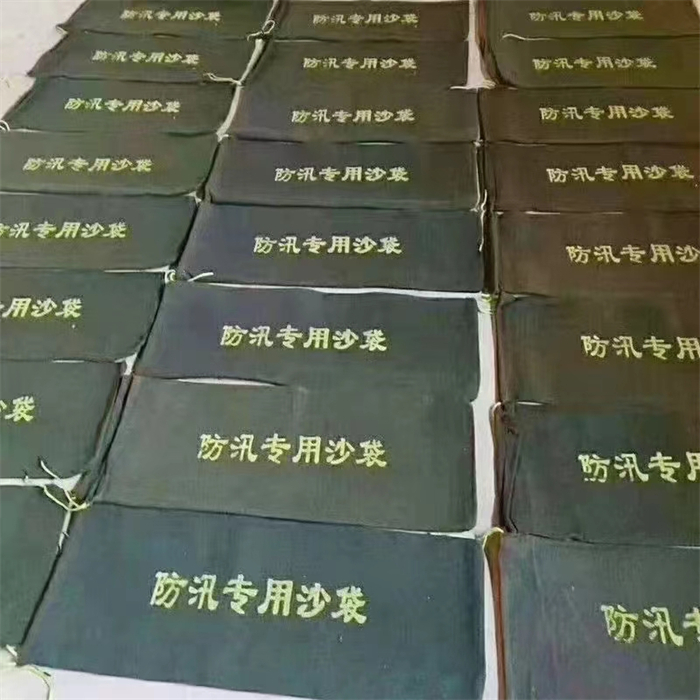 防汛专用沙袋
防汛专用沙袋
防汛专用沙袋
防汛专用沙袋
防汛专用沙袋
防汛专用沙袋
防汛专用沙袋
防汛专用沙袋
防汛专用沙袋
防汛专用沙袋
防汛专用沙袋
防汛专用沙袋
汛专用沙袋
防汛专用沙袋
防汛专用沙
用沙袋
防汛专用沙袋
防汛专用
袋
防汛专用沙袋
防汛专用
防汛专用沙袋
防汛专